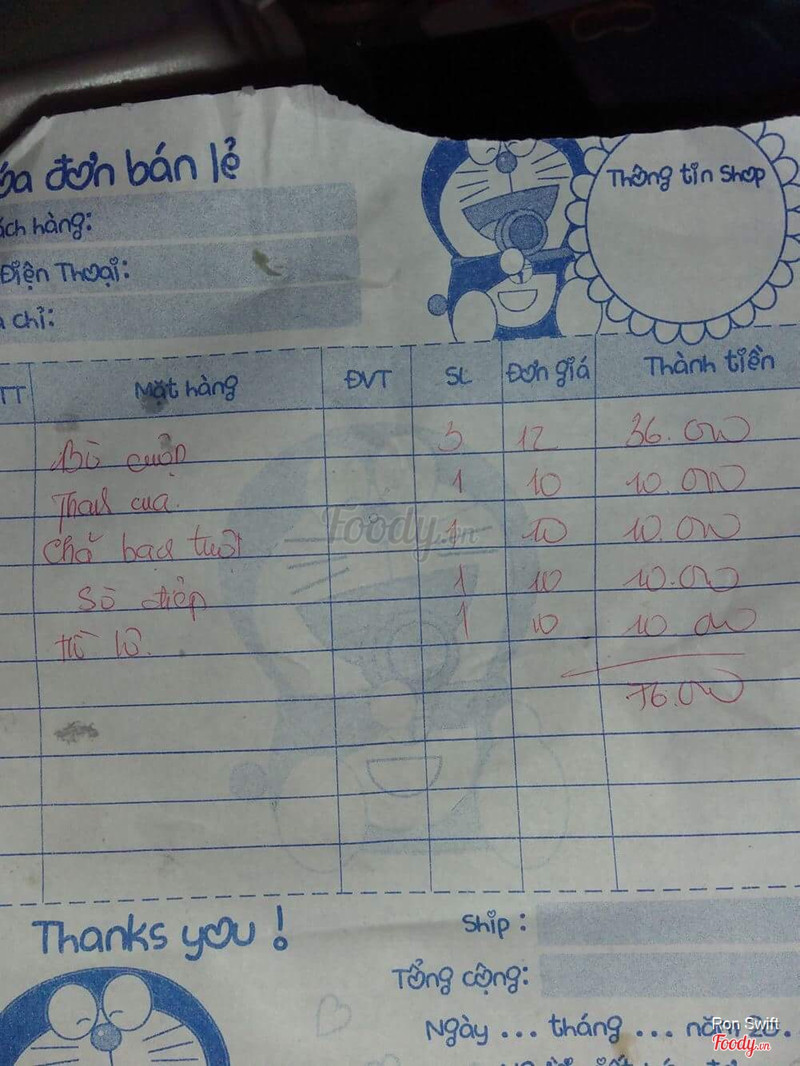 óa đơn bán lẻ
Thông tin Shop
ách hàng:
Điện Thoại:
a chỉ:
TT Mặt hàng ĐVT SL Đơn giá Thành tiền
Bò cuộn 3 12 36.000
Thanh cua 1 10 10.000
Foody.vn
Chả bạch tuột 1 10 10.000
Sò điệp 1 10 10.000
1 10 10.000
76.000
Thanks you!
Ship:
Tổng cộng:
Ngày ... tháng ... năm 20.
Ron Swift
Foody.vn